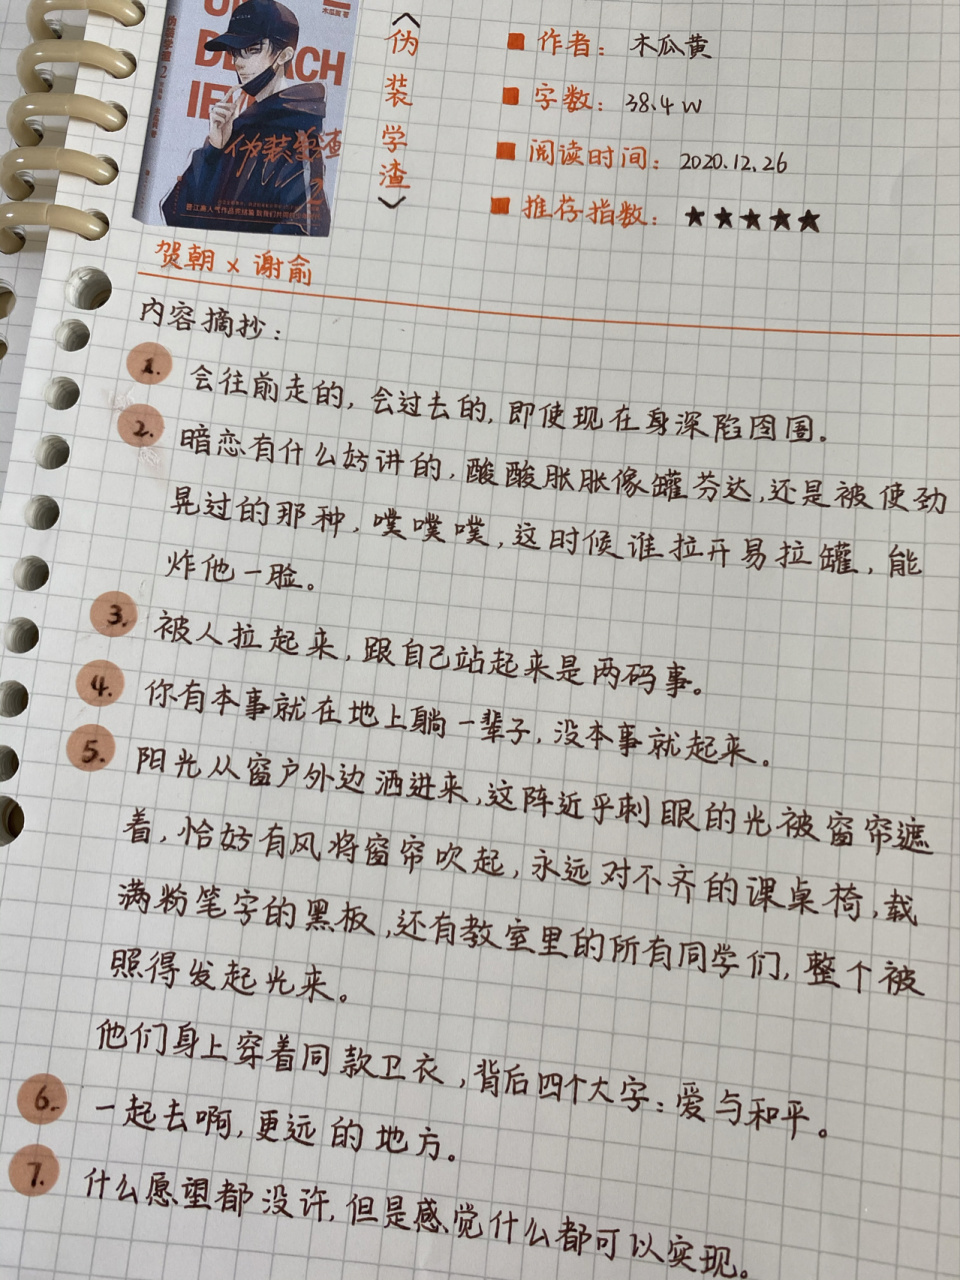 木瓜黄 著
伪装学渣
2
《伪装学渣》
作者：木瓜黄
字数：38.4w
阅读时间：2020.12.26
推荐指数：★★★★★
贺朝 x 谢俞
内容摘抄：
1. 会往前走的，会过去的，即使现在身深陷囹圄。
2. 暗恋有什么好讲的，酸酸胀胀像罐芬达，还是被使劲
晃过的那种，噗噗噗，这时候谁拉开易拉罐，能
炸他一脸。
3. 被人拉起来，跟自己站起来是两码事。
4. 你有本事就在地上躺一辈子，没本事就起来。
5. 阳光从窗户外边洒进来，这阵近乎刺眼的光被窗帘遮
着，恰好有风将窗帘吹起，永远对不齐的课桌椅，载
满粉笔字的黑板，还有教室里的所有同学们，整个被
照得发起光来。
他们身上穿着同款卫衣，背后四个大字：爱与和平。
6. 一起去啊，更远的地方。
7. 什么愿望都没许，但是感觉什么都可以实现。